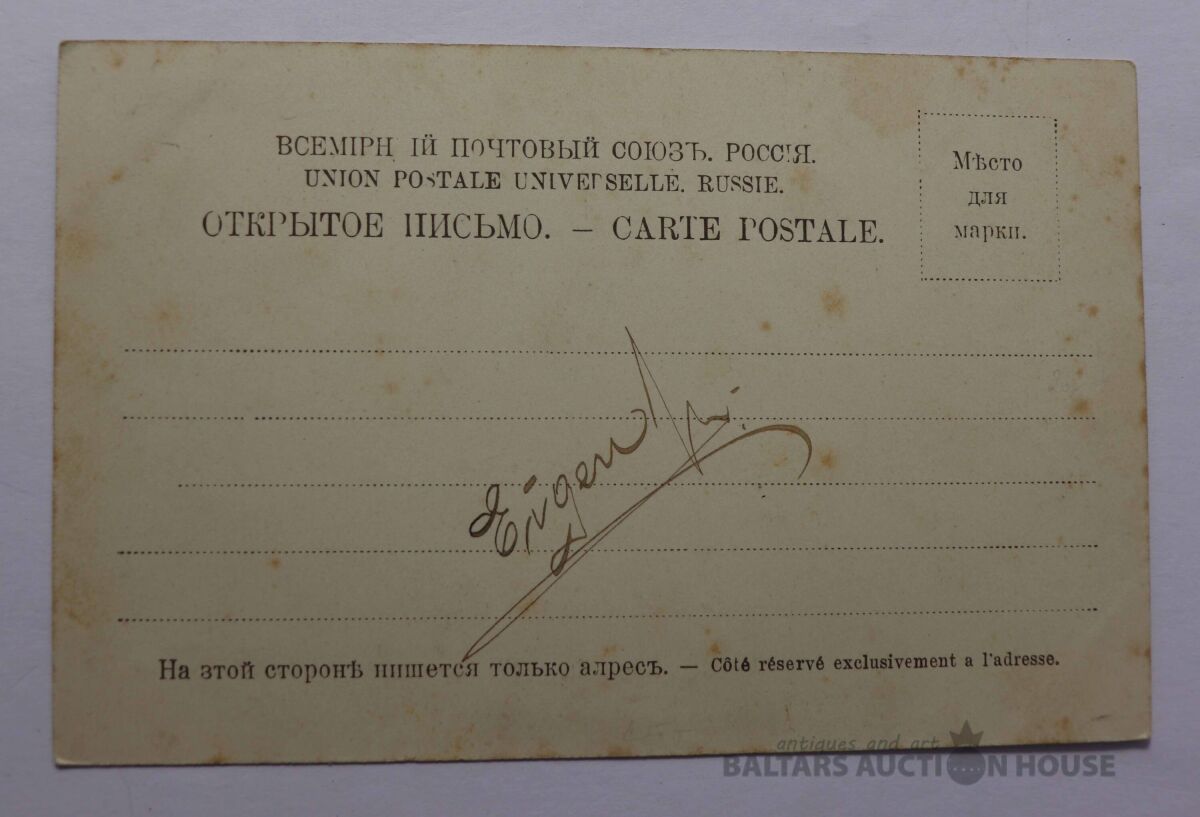 ВСЕМІРН ІЙ ПОЧТОВЫЙ СОЮЗЪ. РОССІЯ.
UNION POSTALE UNIVERSELLE. RUSSIE.
ОТКРЫТОЕ ПИСЬМО. — CARTE POSTALE.
Мѣсто
для
марки.
Eugen
На этой сторонѣ пишется только адресъ. — Côté réservé exclusivement a l'adresse.
antiques and art
BALTARS AUCTION HOUSE